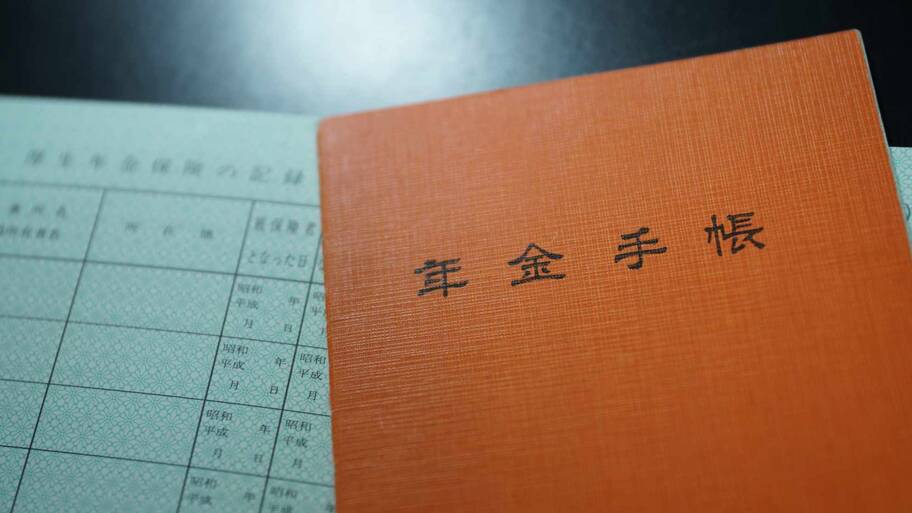 年金手帳
厚生年金保険の記録
所在地
被保険者
となった日
昭和
平成 年
月 日
昭和
平成 年
月 日
昭和
平成
月
昭和
平成 年
月 日
昭和
平成
月
昭和
平成 年
月 日
昭和
平成
月
昭和
平成 年
昭和
平成